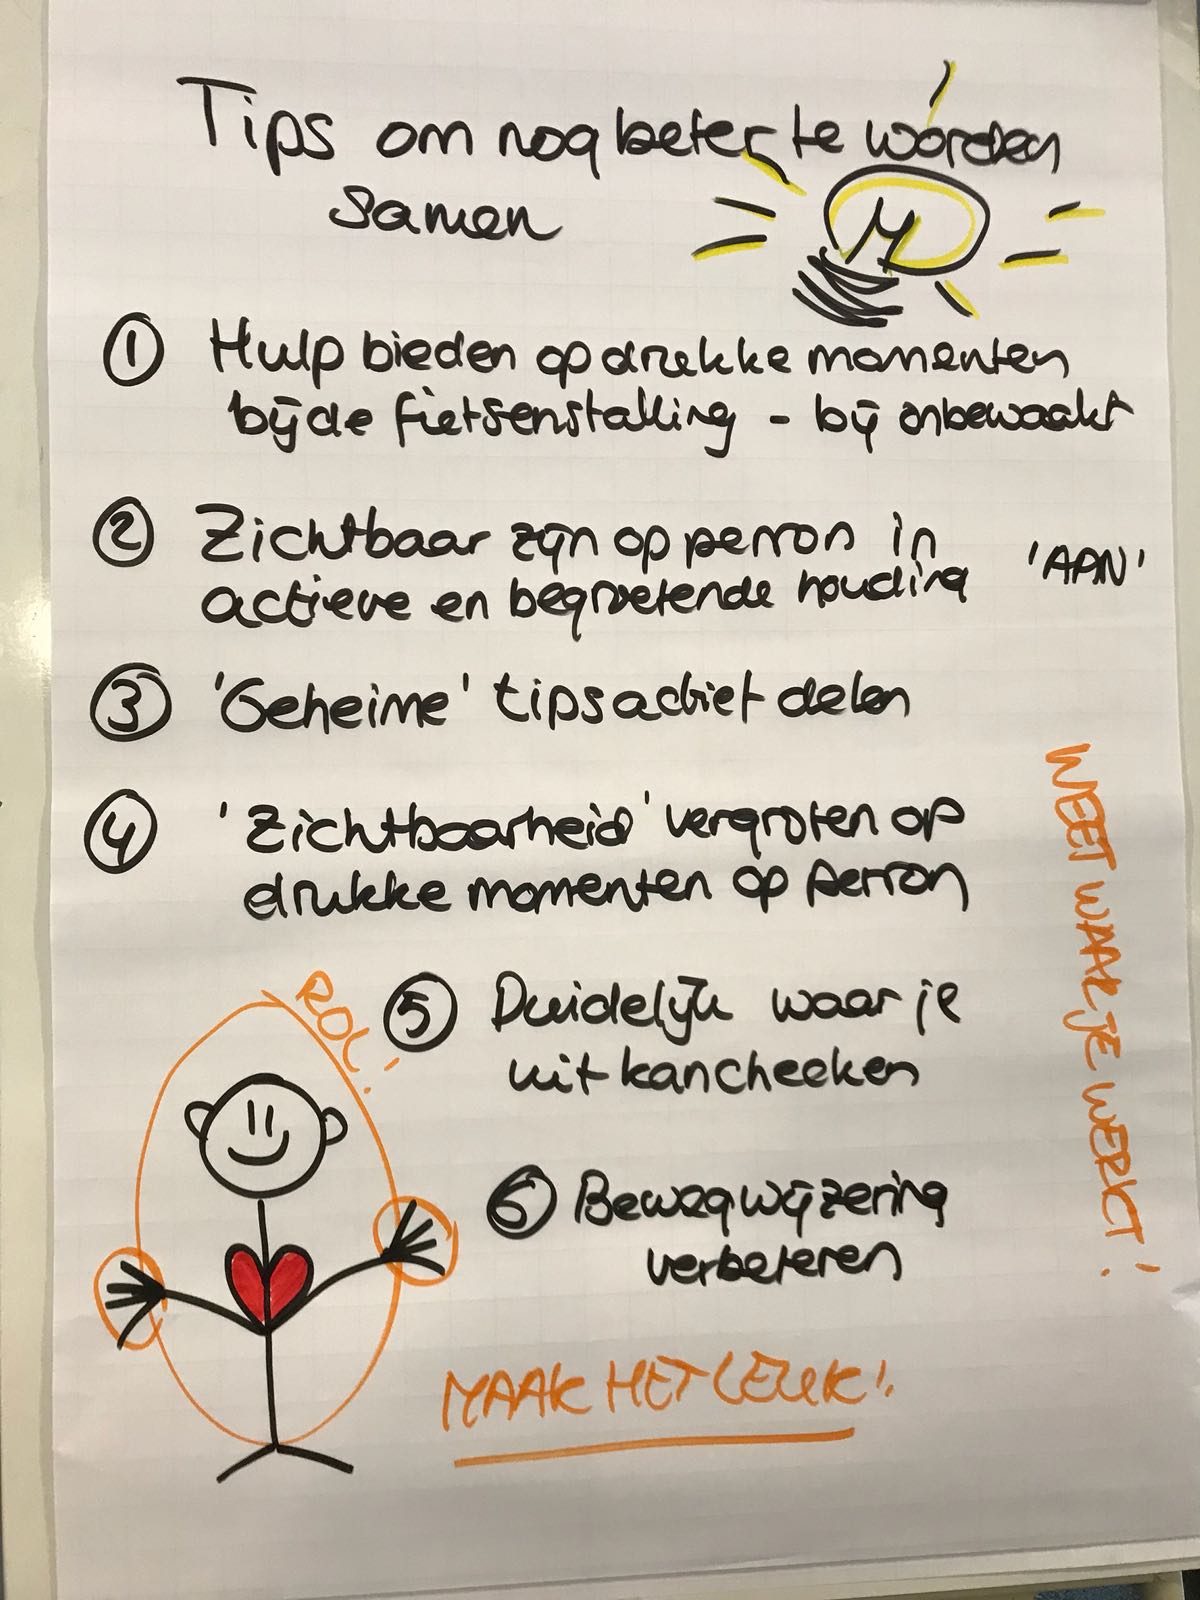 Tips om nog beter te worden
samen
1 Hulp bieden op drukke momenten
bij de fietsenstalling - bij onbewaakt
2 Zichtbaar zijn op perron in
actieve en begroetende houding
3 'Geheime' tips actief delen
4 'Zichtbaarheid' vergroten op
drukke momenten op perron
5 Duidelijk waar je
uit kan checken
6 Bewegwijzering
verbeteren
ROL!
MAAK HET LEUK!
WEET WAAR JE WERKT!